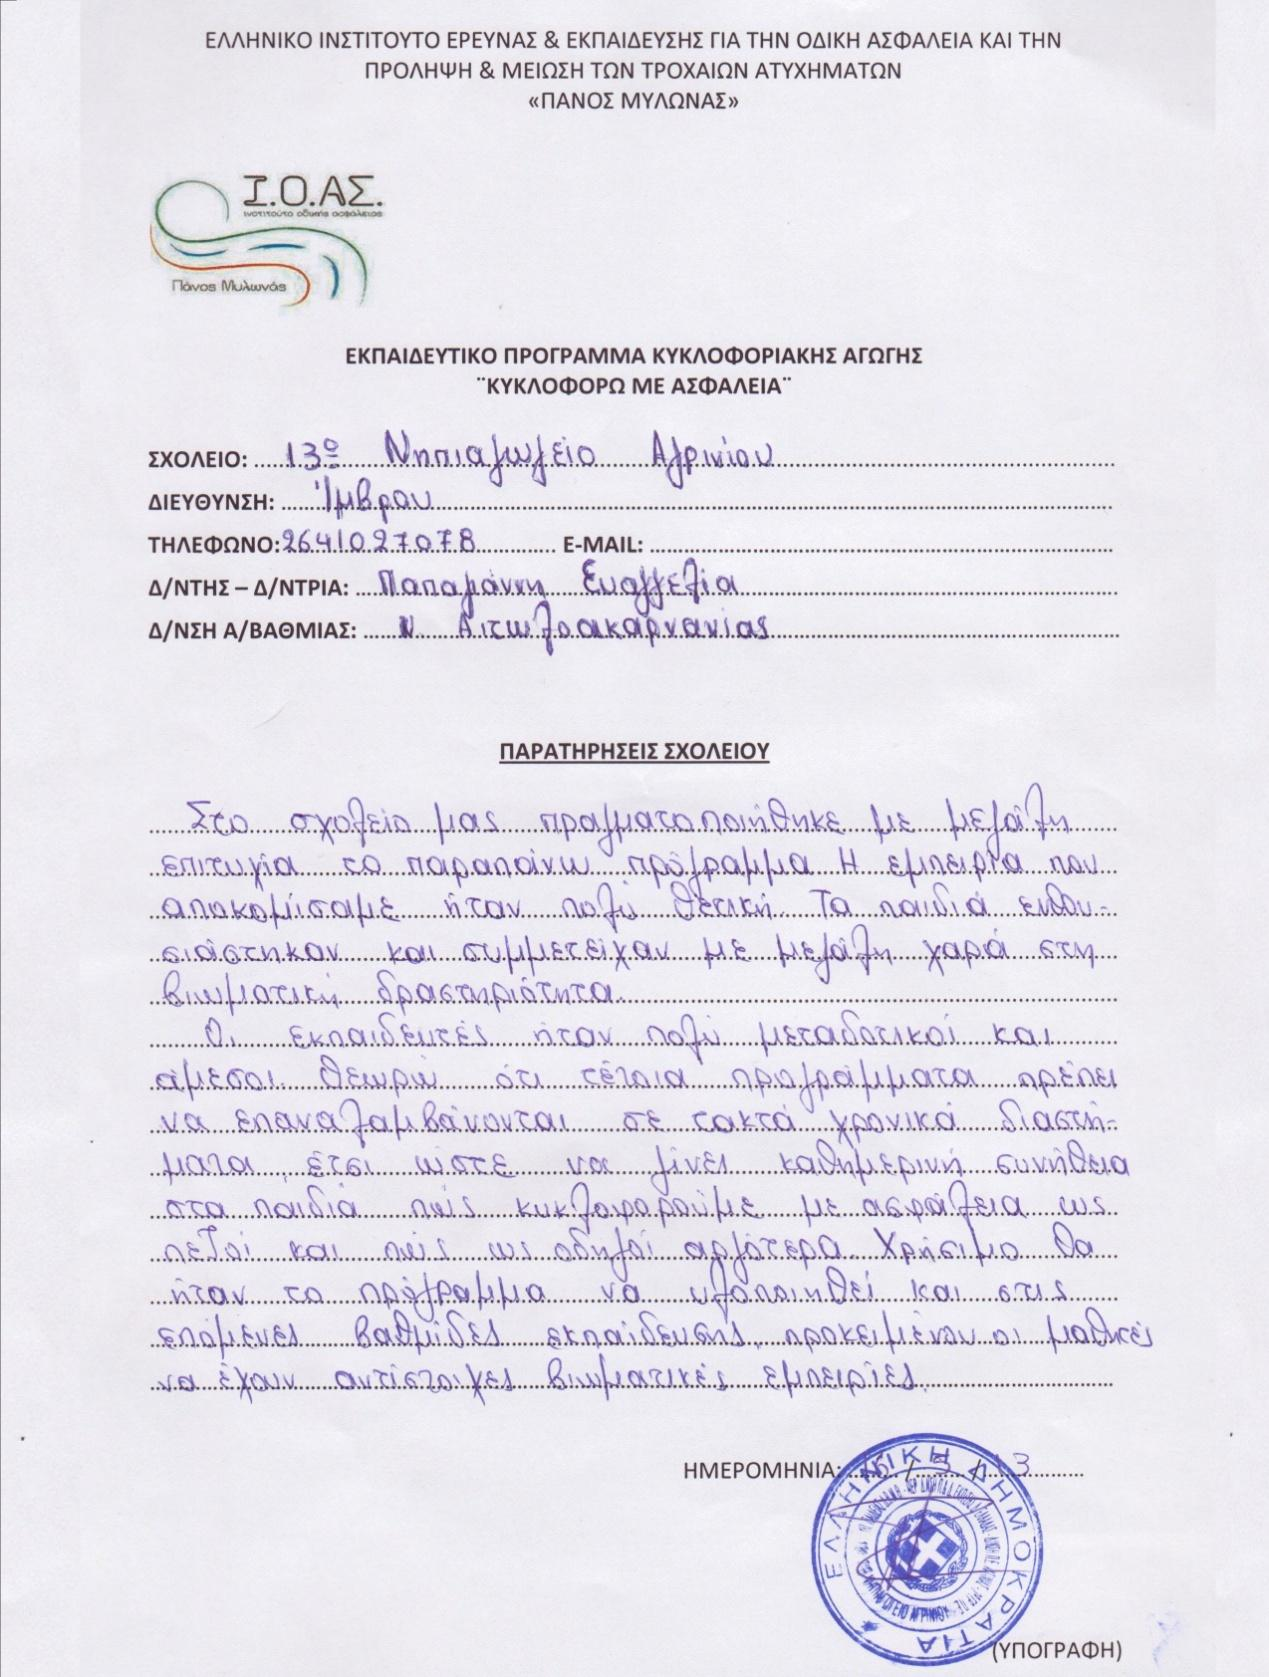 ΕΛΛΗΝΙΚΟ ΙΝΣΤΙΤΟΥΤΟ ΕΡΕΥΝΑΣ & ΕΚΠΑΙΔΕΥΣΗΣ ΓΙΑ ΤΗΝ ΟΔΙΚΗ ΑΣΦΑΛΕΙΑ ΚΑΙ ΤΗΝ
ΠΡΟΛΗΨΗ & ΜΕΙΩΣΗ ΤΩΝ ΤΡΟΧΑΙΩΝ ΑΤΥΧΗΜΑΤΩΝ
«ΠΑΝΟΣ ΜΥΛΩΝΑΣ»
Ι.Ο.ΑΣ.
ινστιτούτο οδικής ασφάλειας
Πάνος Μυλωνάς
ΕΚΠΑΙΔΕΥΤΙΚΟ ΠΡΟΓΡΑΜΜΑ ΚΥΚΛΟΦΟΡΙΑΚΗΣ ΑΓΩΓΗΣ
¨ΚΥΚΛΟΦΟΡΩ ΜΕ ΑΣΦΑΛΕΙΑ¨
ΣΧΟΛΕΙΟ: 13ο Νηπιαγωγείο Αγρινίου
ΔΙΕΥΘΥΝΣΗ: Ίμβρου
ΤΗΛΕΦΩΝΟ: 2641027078 E-MAIL:
Δ/ΝΤΗΣ – Δ/ΝΤΡΙΑ: Παπαγιάννη Ευαγγελία
Δ/ΝΣΗ Α/ΒΑΘΜΙΑΣ: Ν. Αιτωλοακαρνανίας
ΠΑΡΑΤΗΡΗΣΕΙΣ ΣΧΟΛΕΙΟΥ
Στο σχολείο μας πραγματοποιήθηκε με μεγάλη
επιτυχία το παραπάνω πρόγραμμα. Η εμπειρία που
αποκομίσαμε ήταν πολύ θετική. Τα παιδιά ενθου-
σιάστηκαν και συμμετείχαν με μεγάλη χαρά στη
βιωματική δραστηριότητα.
Οι εκπαιδευτές ήταν πολύ μεταδοτικοί και
άμεσοι. Θεωρώ ότι τέτοια προγράμματα πρέπει
να επαναλαμβάνονται σε τακτά χρονικά διαστή-
ματα, έτσι ώστε να γίνει καθημερινή συνήθεια
στα παιδιά πώς κυκλοφορούμε με ασφάλεια ως
πεζοί και πώς ως οδηγοί αργότερα. Χρήσιμο θα
ήταν το πρόγραμμα να υλοποιηθεί και στις
επόμενες βαθμίδες εκπαίδευσης, προκειμένου οι μαθητές
να έχουν αντίστοιχες βιωματικές εμπειρίες.
ΗΜΕΡΟΜΗΝΙΑ: / 3 / 13
ΕΛΛΗΝΙΚΗ ΔΗΜΟΚΡΑΤΙΑ
(ΥΠΟΓΡΑΦΗ)